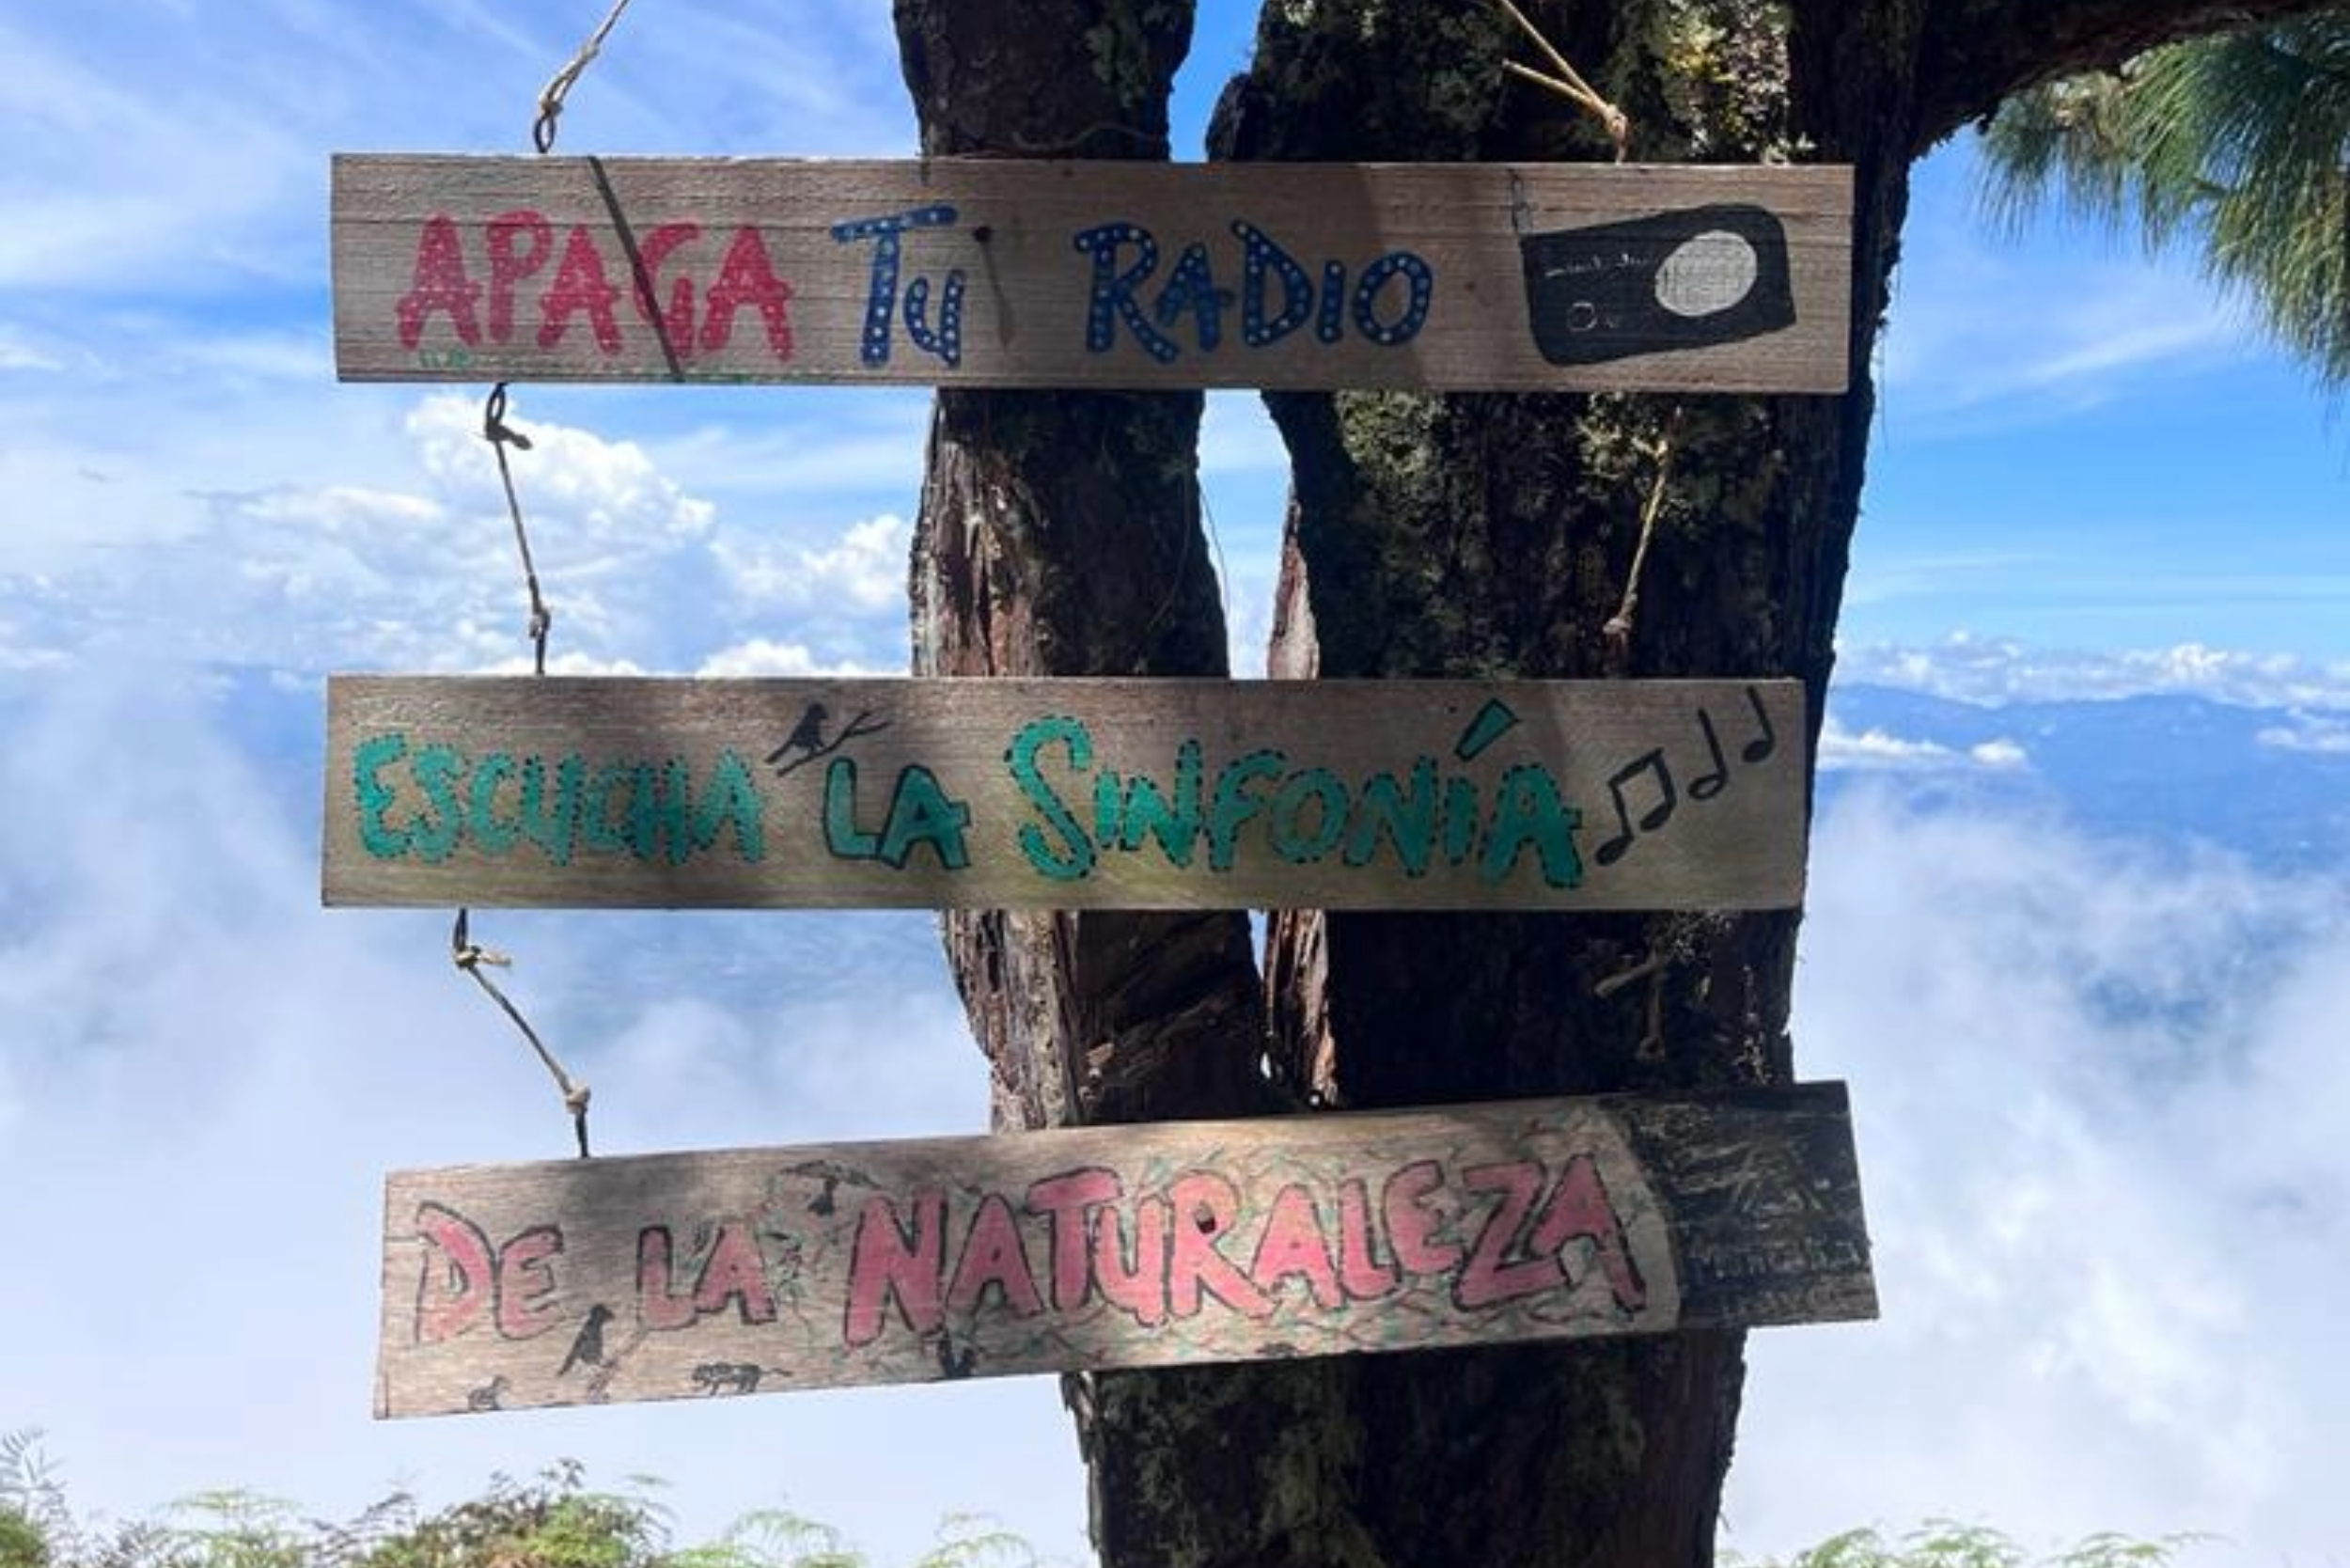 APAGA Tu RADIO
ESCUCHA LA SINFONÍA
DE LA NATURALEZA